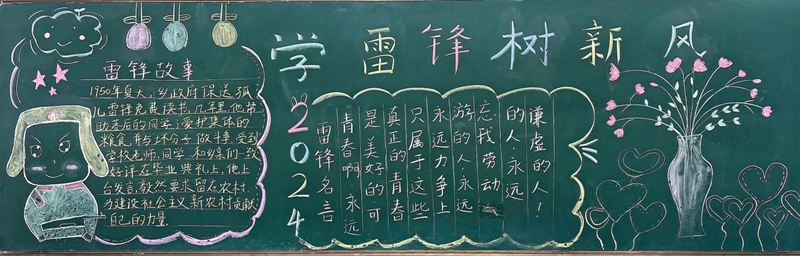 学雷锋树新风
雷锋故事
1950年夏天,乡政府保送孤
儿雷锋免费读书,几年里,他帮
助落后的同学;爱护集体的
粮食,并与坏分子做斗争,受到
学校老师、同学和乡亲们一致
好评在毕业典礼上,他上
台发言,毅然要求留在农村,
为建设社会主义新农村贡献
自己的力量
2024
雷锋名言
青春啊,永远
是美好的,可
真正的青春
只属于这些
永远力争上
游的人,永远
忘我劳动
的人,永远
谦虚的人!